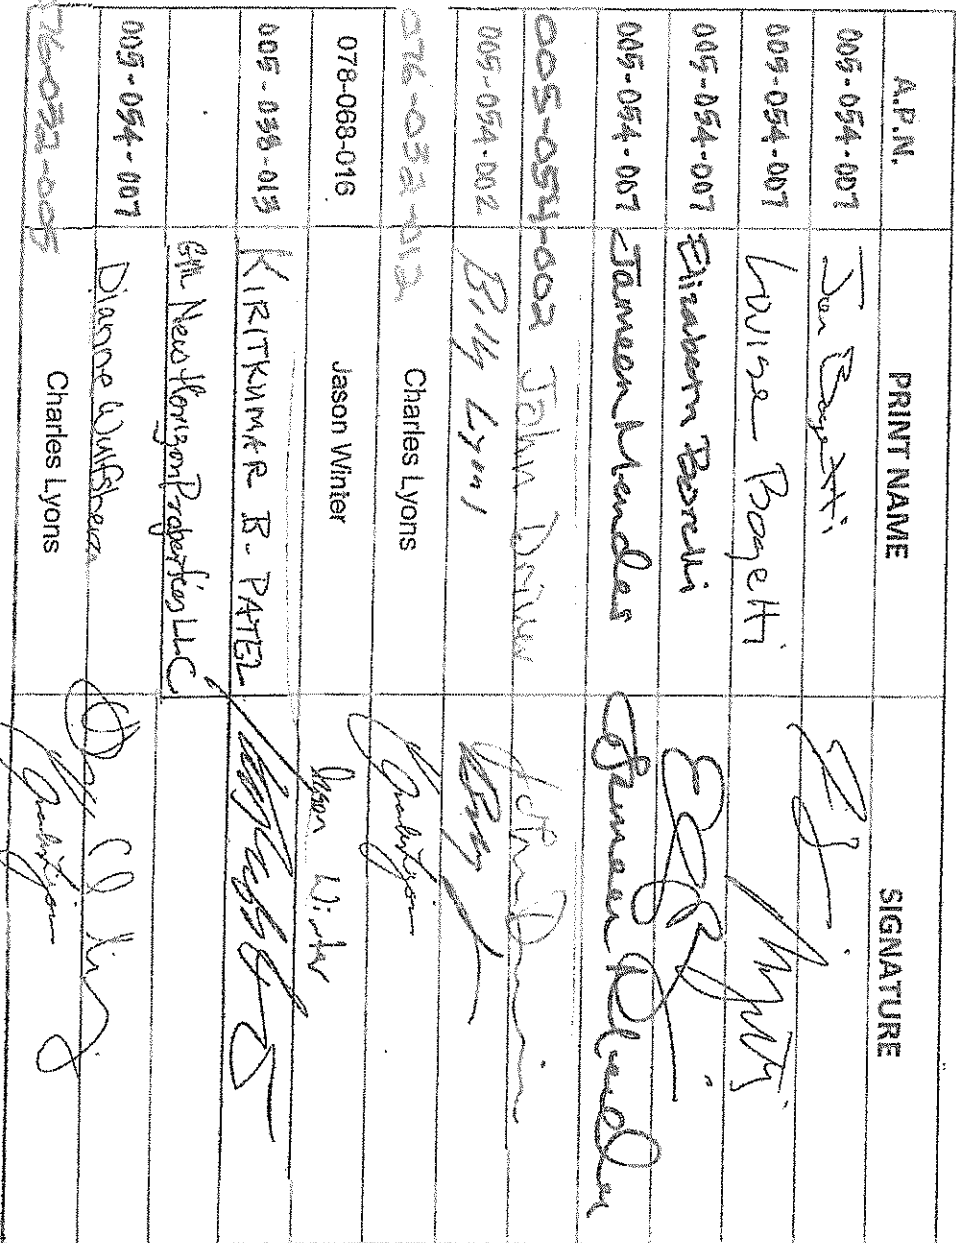 A.P.N. PRINT NAME SIGNATURE
005-054-007 Jon Bagetti
005-054-007 Louise Bogetti
005-054-007 Elizabeth Borelli
005-054-007 Jameson Mendes
005-054-002 John Driver
005-054-002 Billy Lyons
076-032-012 Charles Lyons Charles Lyons
078-068-016 Jason Winter Jason Winter
005-038-013 KIRITKUMAR B. PATEL
GM New Horizon Properties LLC
005-054-007 Dianne
76-032-005 Charles Lyons Charles Lyons